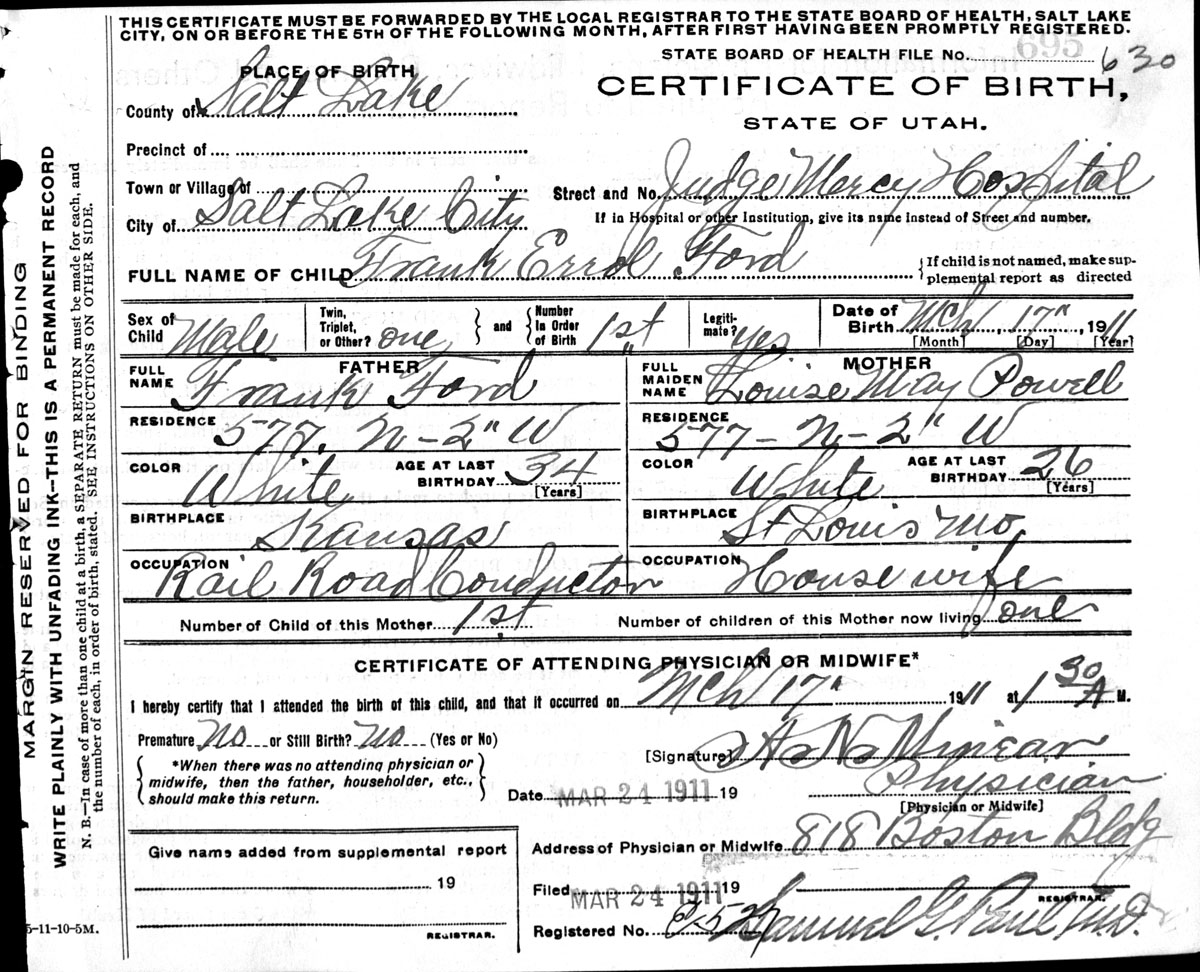 THIS CERTIFICATE MUST BE FORWARDED BY THE LOCAL REGISTRAR TO THE STATE BOARD OF HEALTH, SALT LAKE
CITY, ON OR BEFORE THE 5TH OF THE FOLLOWING MONTH, AFTER FIRST HAVING BEEN PROMPTLY REGISTERED.
STATE BOARD OF HEALTH FILE No. 695 630
PLACE OF BIRTH
CERTIFICATE OF BIRTH,
County of Salt Lake
STATE OF UTAH.
Precinct of
Town or Village of
Street and No. Judge Mercy Hospital
City of Salt Lake City
If in Hospital or other Institution, give its name instead of Street and number.
FULL NAME OF CHILD Frank Errol Ford
{If child is not named, make sup-
plemental report as directed
Sex of Child Male
Twin, Triplet, or Other? one } and { Number In Order of Birth 1st
Legiti-mate? Yes
Date of Birth Mch, 17", 1911
[Month] [Day] [Year]
FATHER
FULL NAME Frank Ford
MOTHER
FULL MAIDEN NAME Louise May Powell
RESIDENCE 577. N-2" W
RESIDENCE 577-N-2" W
COLOR White AGE AT LAST BIRTHDAY 34 [Years]
COLOR White AGE AT LAST BIRTHDAY 26 [Years]
BIRTHPLACE Kansas
BIRTHPLACE St Louis Mo.
OCCUPATION Rail Road Conductor
OCCUPATION House wife
Number of Child of this Mother 1st
Number of children of this Mother now living one
CERTIFICATE OF ATTENDING PHYSICIAN OR MIDWIFE*
I hereby certify that I attended the birth of this child, and that it occurred on Mch 17" 1911 at 1 30 A M.
Premature No or Still Birth? No (Yes or No)
{ *When there was no attending physician or
midwife, then the father, householder, etc.,
should make this return. }
[Signature] A. N. Minear
Physician
[Physician or Midwife]
Date MAR 24 1911 19
Address of Physician or Midwife 818 Boston Bldg
Give name added from supplemental report
19
REGISTRAR.
Filed MAR 24 1911 19
REGISTRAR.
Registered No. Samuel G. Paul M.D.
5-11-10-5M.
MARGIN RESERVED FOR BINDING
WRITE PLAINLY WITH UNFADING INK—THIS IS A PERMANENT RECORD
N. B.—In case of more than one child at a birth, a SEPARATE RETURN must be made for each, and
the number of each, in order of birth, stated. SEE INSTRUCTIONS ON OTHER SIDE.